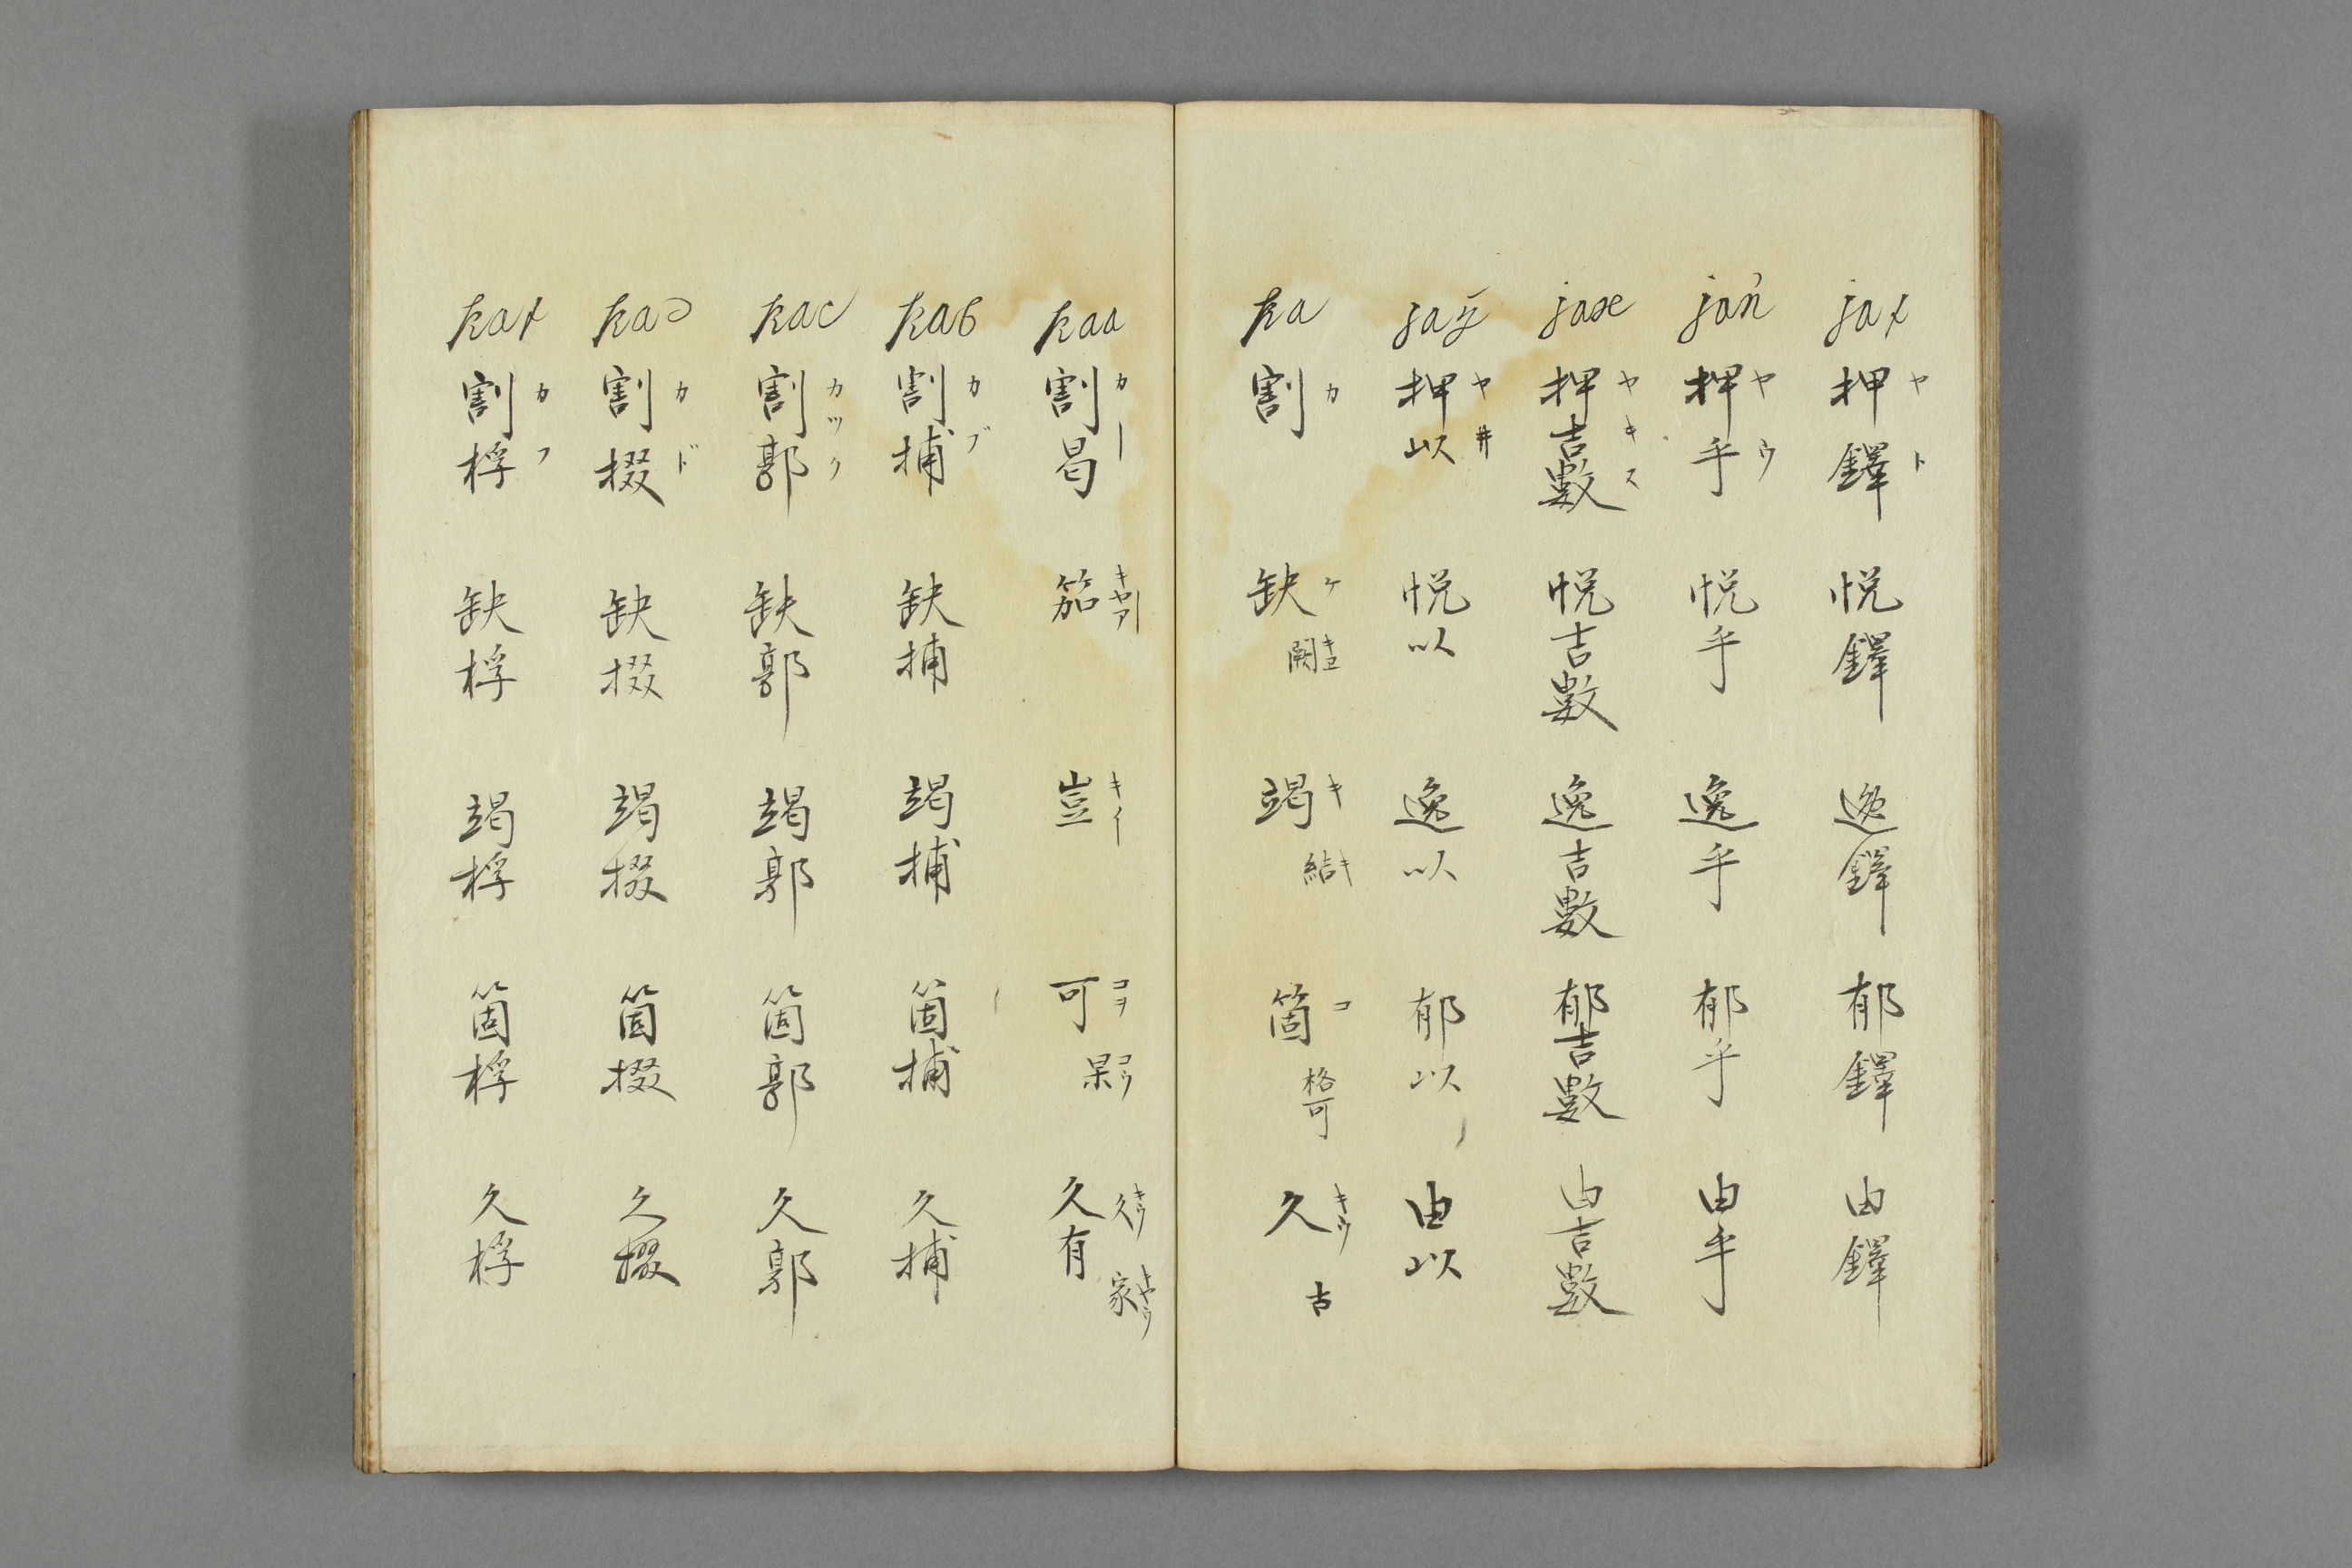 jat 押鐸 ヤト 悦鐸 逸鐸 郁鐸 由鐸
jau 押乎 ヤウ 悦乎 逸乎 郁乎 由乎
jax 押吉數 ヤキス 悦吉數 逸吉數 郁吉數 由吉數
jaÿ 押以 ヤ井 悦以 逸以 郁以 由以
ka 割 カ 缺 ケ 闕 竭 キ 結 キ 箇 コ 格 可 久 キウ 古
kaa 割曷 カー 笳 キヤア 豈 キイ 可 コヲ 杲 コウ 久有 久 キウ 家 キヤウ
kab 割捕 カブ 缺捕 竭捕 箇捕 久捕
kac 割郭 カツク 缺郭 竭郭 箇郭 久郭
kad 割掇 カド 缺掇 竭掇 箇掇 久掇
kaf 割桴 カフ 缺桴 竭桴 箇桴 久桴